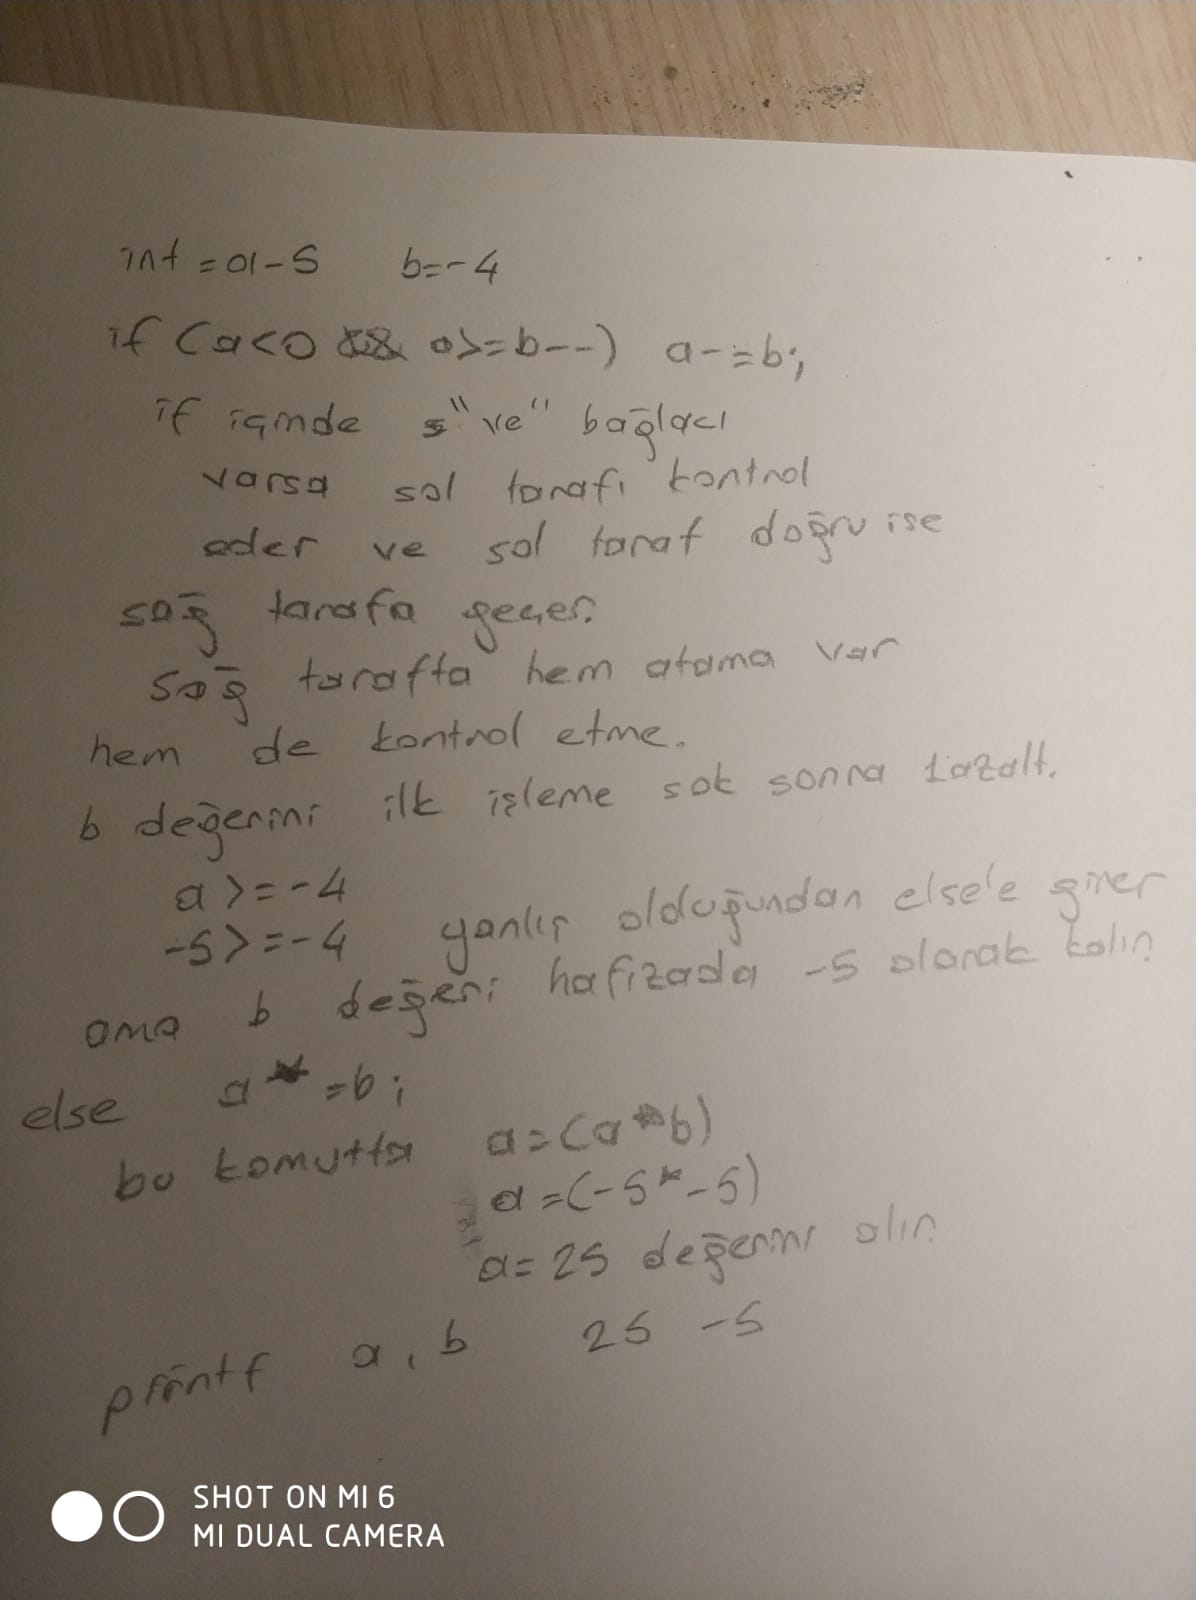 int = a-5 b=-4
if (a<0 && a>=b--) a-=b;
if içinde "ve" bağlacı
varsa sol tarafı kontrol
eder ve sol taraf doğru ise
sağ tarafa geçer.
Sağ tarafta hem atama var
hem de kontrol etme.
b değerini ilk işleme sok sonra 1 azalt.
a>=-4
-5>=-4 yanlış olduğundan else'e girer
ama b değeri hafızada -5 olarak kalır
else a*=b;
bu komutta a=(a*b)
a=(-5*-5)
a=25 değerini alır
printf a, b 25 -5
SHOT ON MI 6
MI DUAL CAMERA